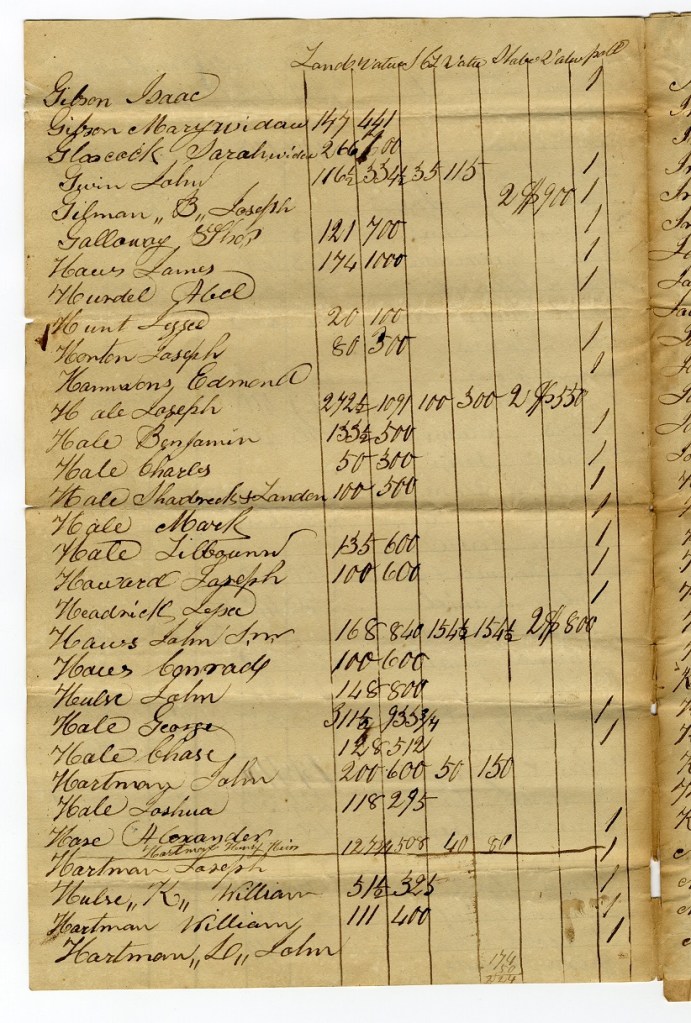 Land Value S G L Value Slabs Value poll
Gibson Isaac 1
Gibson Mary widow 147 441
Glascock Sarah widow 266 600
Gwin John 116½ 334½ 35 115 1
Gilman „ B „ Joseph 2 $900 1
Galloway Thos 121 700 1
Haws James 174 1000 1
Hundel Abel 1
Hunt Jesse 20 100
Horton Joseph 80 300 1
Hammons, Edmond 1
Hale Joseph 272½ 1091 100 300 2 $550
Hale Benjamin 133½ 500 1
Hale Charles 50 300 1
Hale Shadreck & Landon 100 500 1
Hale Mark 1
Hale 135 600 1
Howard Joseph 100 600 1
Headrick 1
Haws John Snr 168 840 154½ 154½ 2 $800
Haws Conrad 100 600
Hulse John 148 800
Hale George 311½ 935 3/4 1
Hale Chase 128 512 1
Hartman John 200 600 50 150
Hale Joshua 118 295
Hase Alexander 1
Hartman Henry Heirs 127 508 40 80
Hartman Joseph 1
Hulse „ K „ William 51½ 325 1
Hartman William 111 400 1
Hartman „ D „ John 1
174
50
224